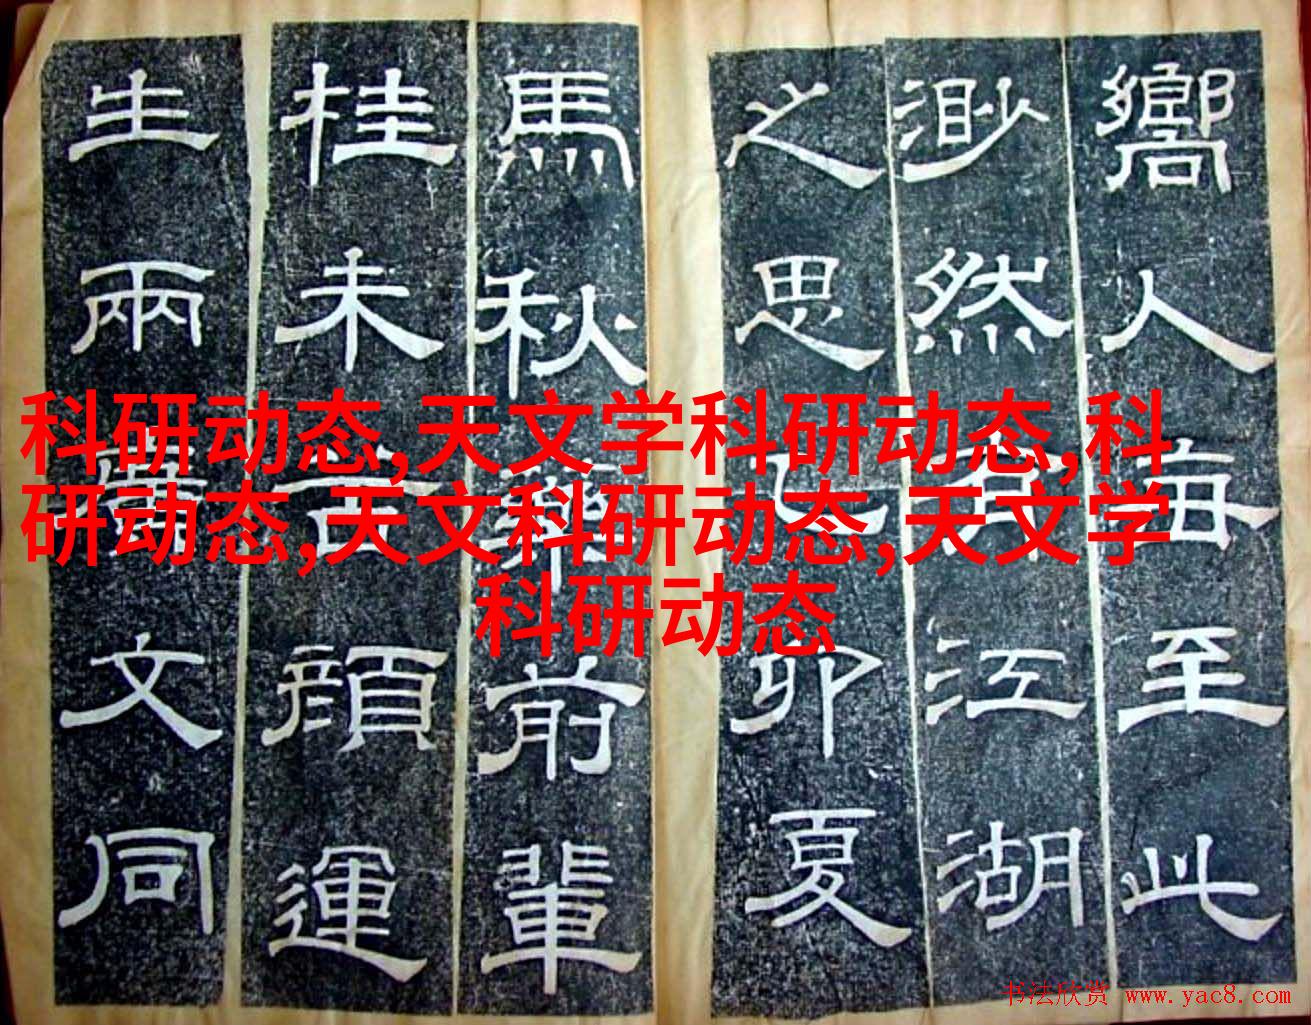 嚮人每至此
渺然有江湖
之思己卯夏
馬秋藥前輩
桂未谷顔運
生兩廣文同
科研动态,天文学科研动态,科
研动态,天文科研动态,天文学
科研动态
书法欣赏 www.yac8.com